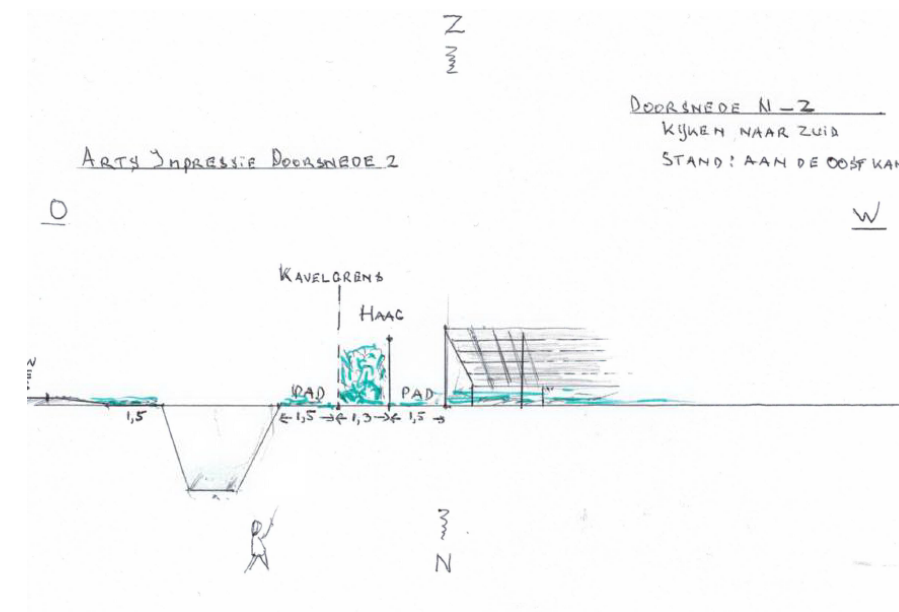 Z
DOORSNEDE N-Z
KIJKEN NAAR ZUID
STAND: AAN DE OOST KAN
ARTY IMPRESSIE DOORSNEDE 2
O
W
KAVELGRENS
HAAG
PAD
PAD
1,5
1,5
1,3
1,5
N